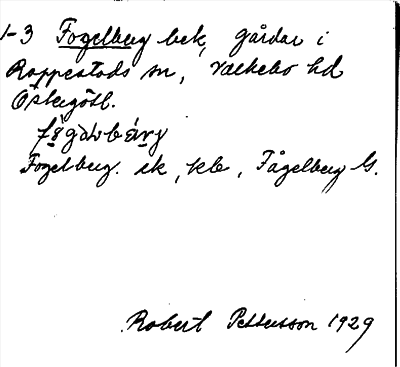 1-3 Fogelberg bek, gårdar i
Rappestads sn, Valkebo hd
Östergötl.
Fogelberg. ek, kb, Fågelberg G.
Robert Pettersson 1929